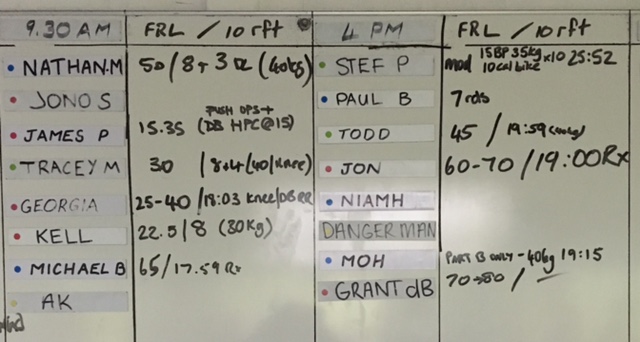 9.30 AM FRL / 10 rft
NATHAN.M 50 / 8 + 3 (40kg)
JONO S
PUSH UPS
JAMES P 15.35 (DB HPC@15)
TRACEY M 30 / 8+4 (40/knee)
GEORGIA 25-40 / 18:03 knee/
KELL 22.5 / 8 (30kg)
MICHAEL B 65 / 17.59 Rx
AK
4 PM FRL / 10 rft
STEF P mod 15BP 35kg x10 25:52
10 cal bike
PAUL B 7 rds
TODD 45 / 19:59
JON 60-70 / 19:00 Rx
NIAMH
DANGERMAN
MOH PART B ONLY - 40kg 19:15
GRANT dB 70→80 /